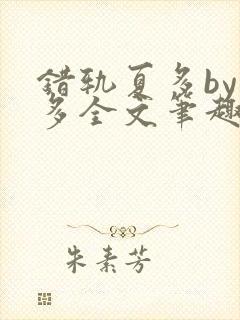 错轨夏多by
多全文笔趣
朱素芳